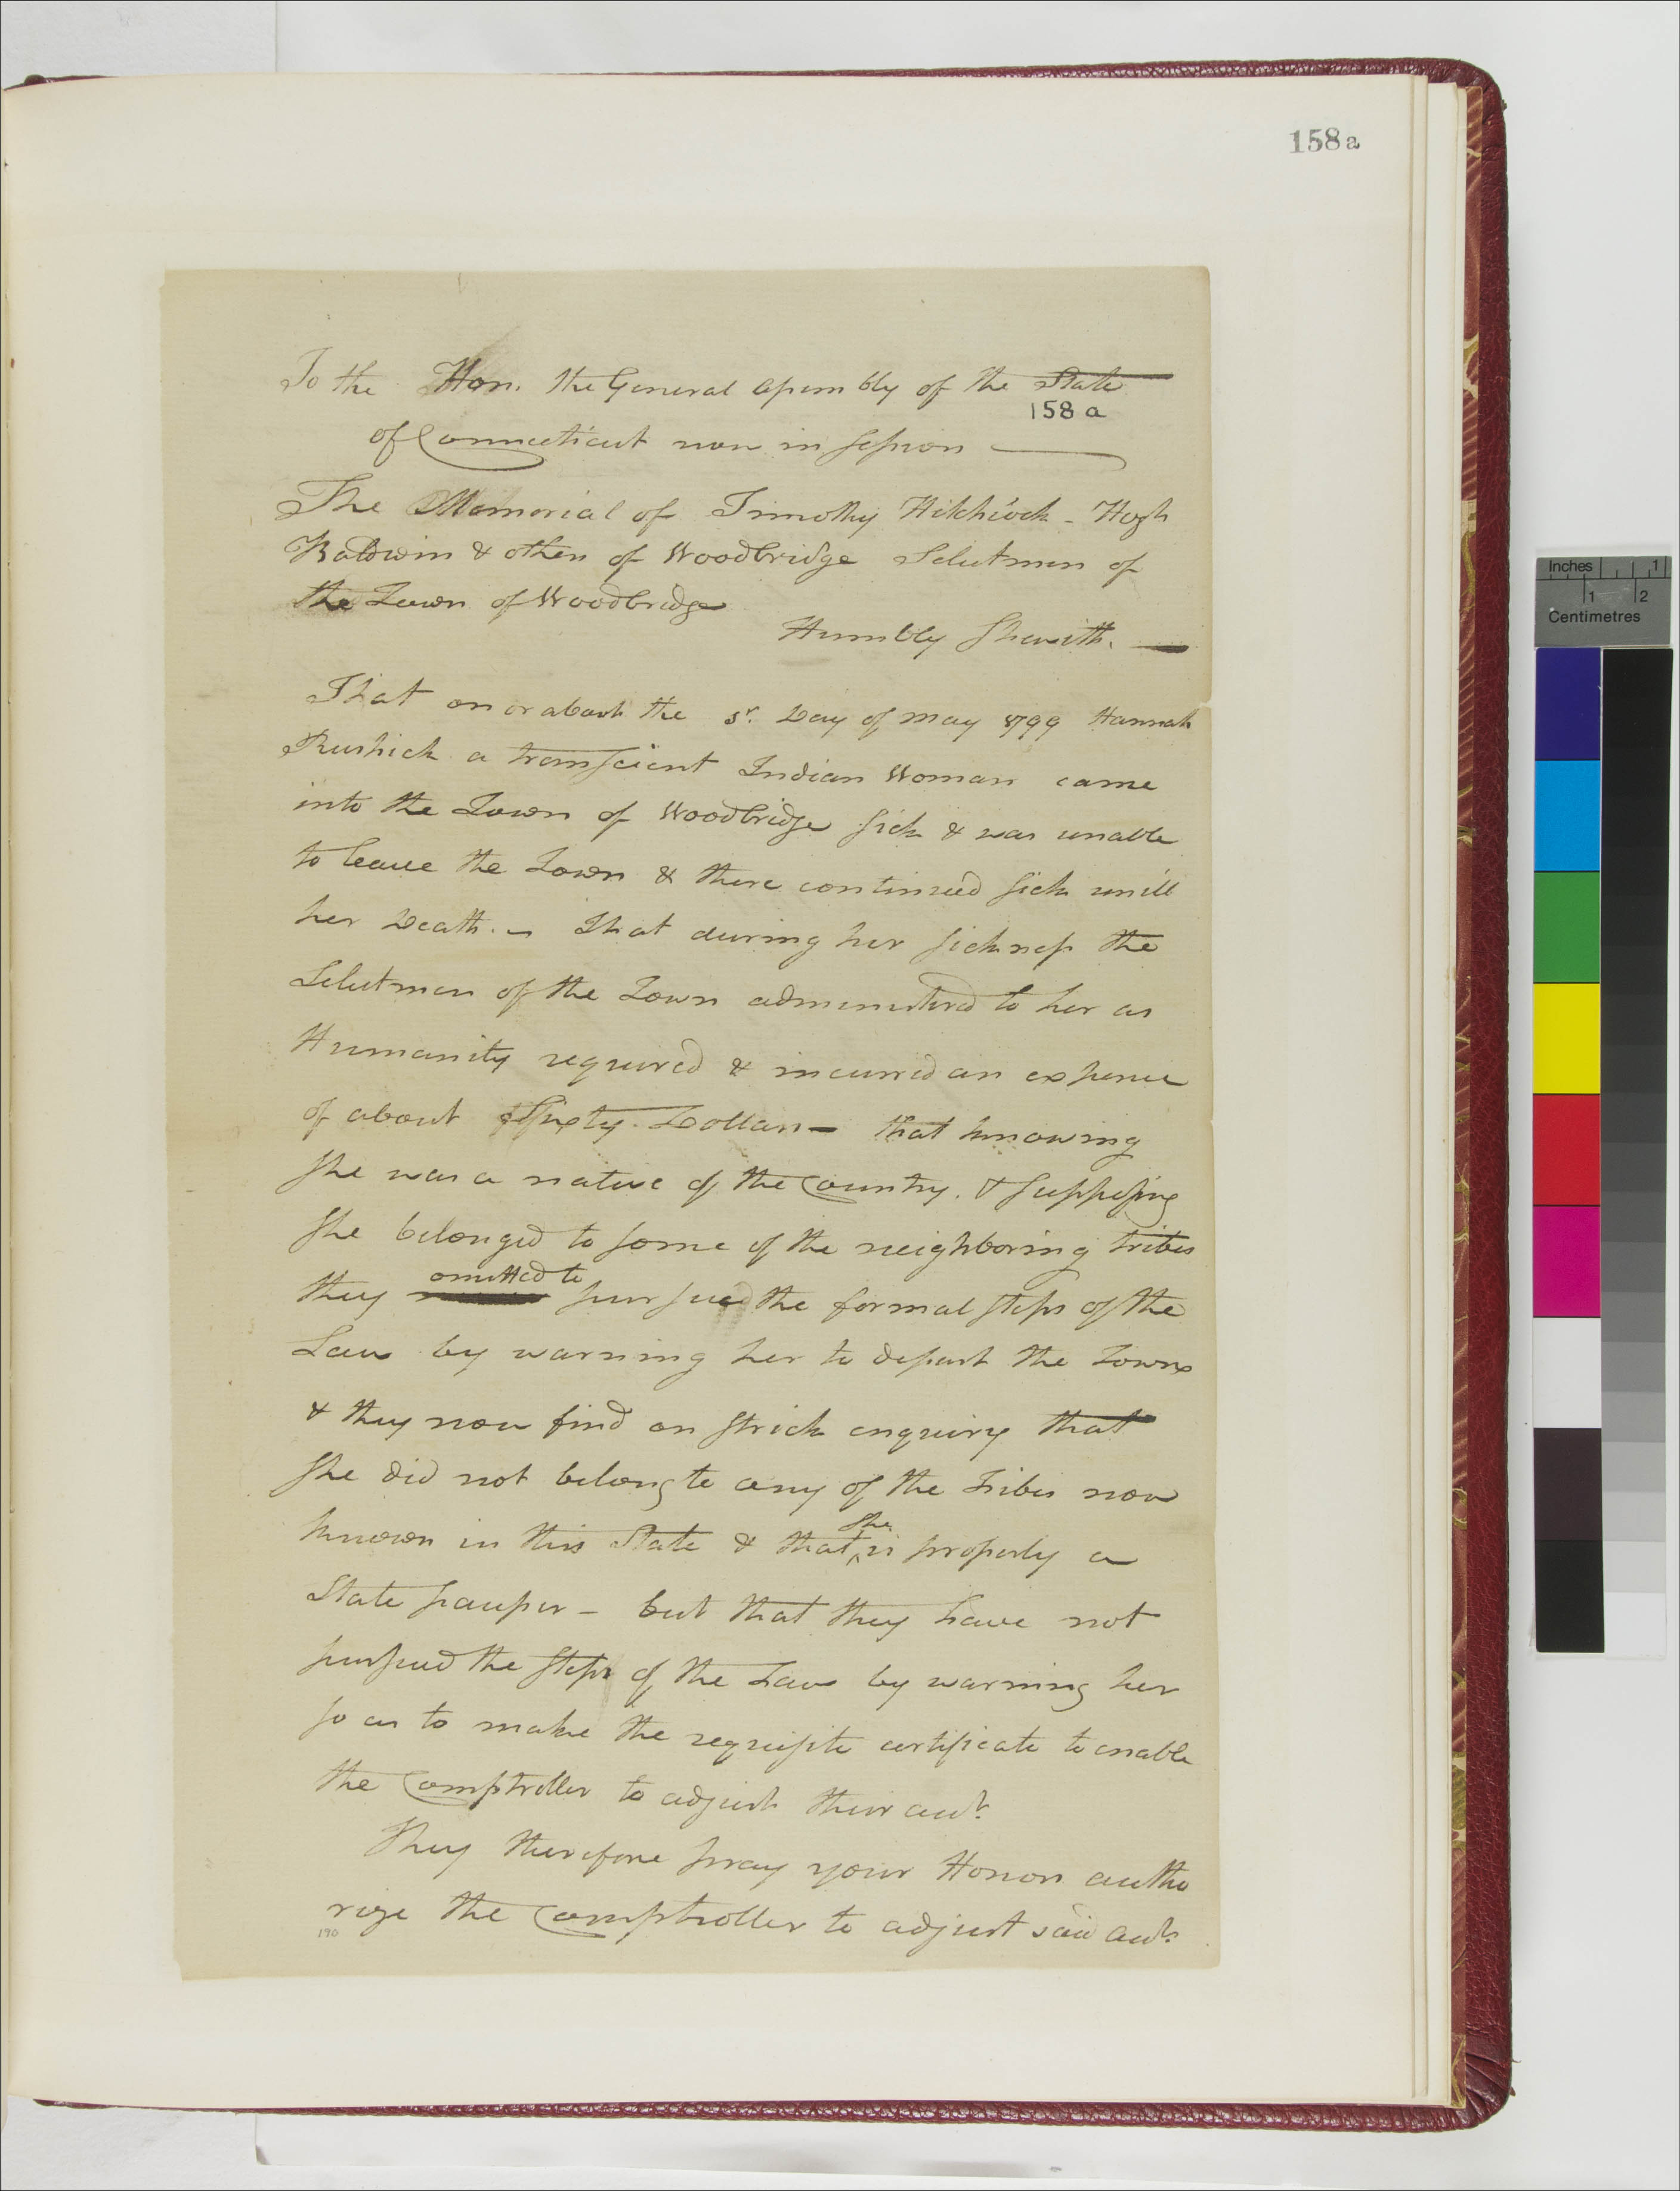 158a
To the Hon. the General Assembly of the State
158 a
of Connecticut now in session
The Memorial of Timothy Hitchcock - Hezh
Baldwin & others of Woodbridge Selectmen of
the Town of Woodbridge
Humbly Sheweth.
That on or about the 5r. Day of May 1799 Hannah
a transcient Indian Woman came
into the Town of Woodbridge sick & was unable
to leave the Town & there continued sick untill
her Death. - That during her sickness the
Selectmen of the Town administered to her as
Humanity required & incurred an expence
of about Dollars - that knowing
she was a native of the Country. & supposing
she belonged to some of the neighboring tribes
omitted to
they pursue the formal steps of the
Law by warning her to depart the Town
& they now find on strick enquiry that
she did not belong to any of the Tribes now
she
known in this State & that is properly a
State pauper - but that they have not
pursued the steps of the Law by warning her
so as to make the requisite certificate to enable
the Comptroller to adjust their acct.
They therefore pray your Honors autho
rize the Comptroller to adjust said accts
190
Inches 1
1 2
Centimetres